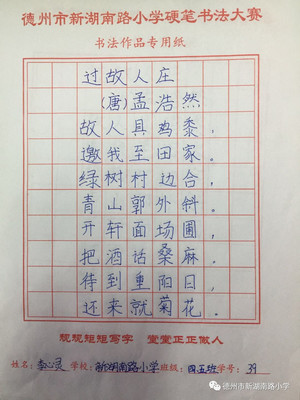 德州市新湖南路小学硬笔书法大赛
书法作品专用纸
过故人庄
(唐)孟浩然
故人具鸡黍，
邀我至田家。
绿树村边合，
青山郭外斜。
开轩面场圃，
把酒话桑麻。
待到重阳日，
还来就菊花。
规规矩矩写字 堂堂正正做人
姓名：李心灵 学校：新湖南路小学 班级：四五班 学号：39
德州市新湖南路小学